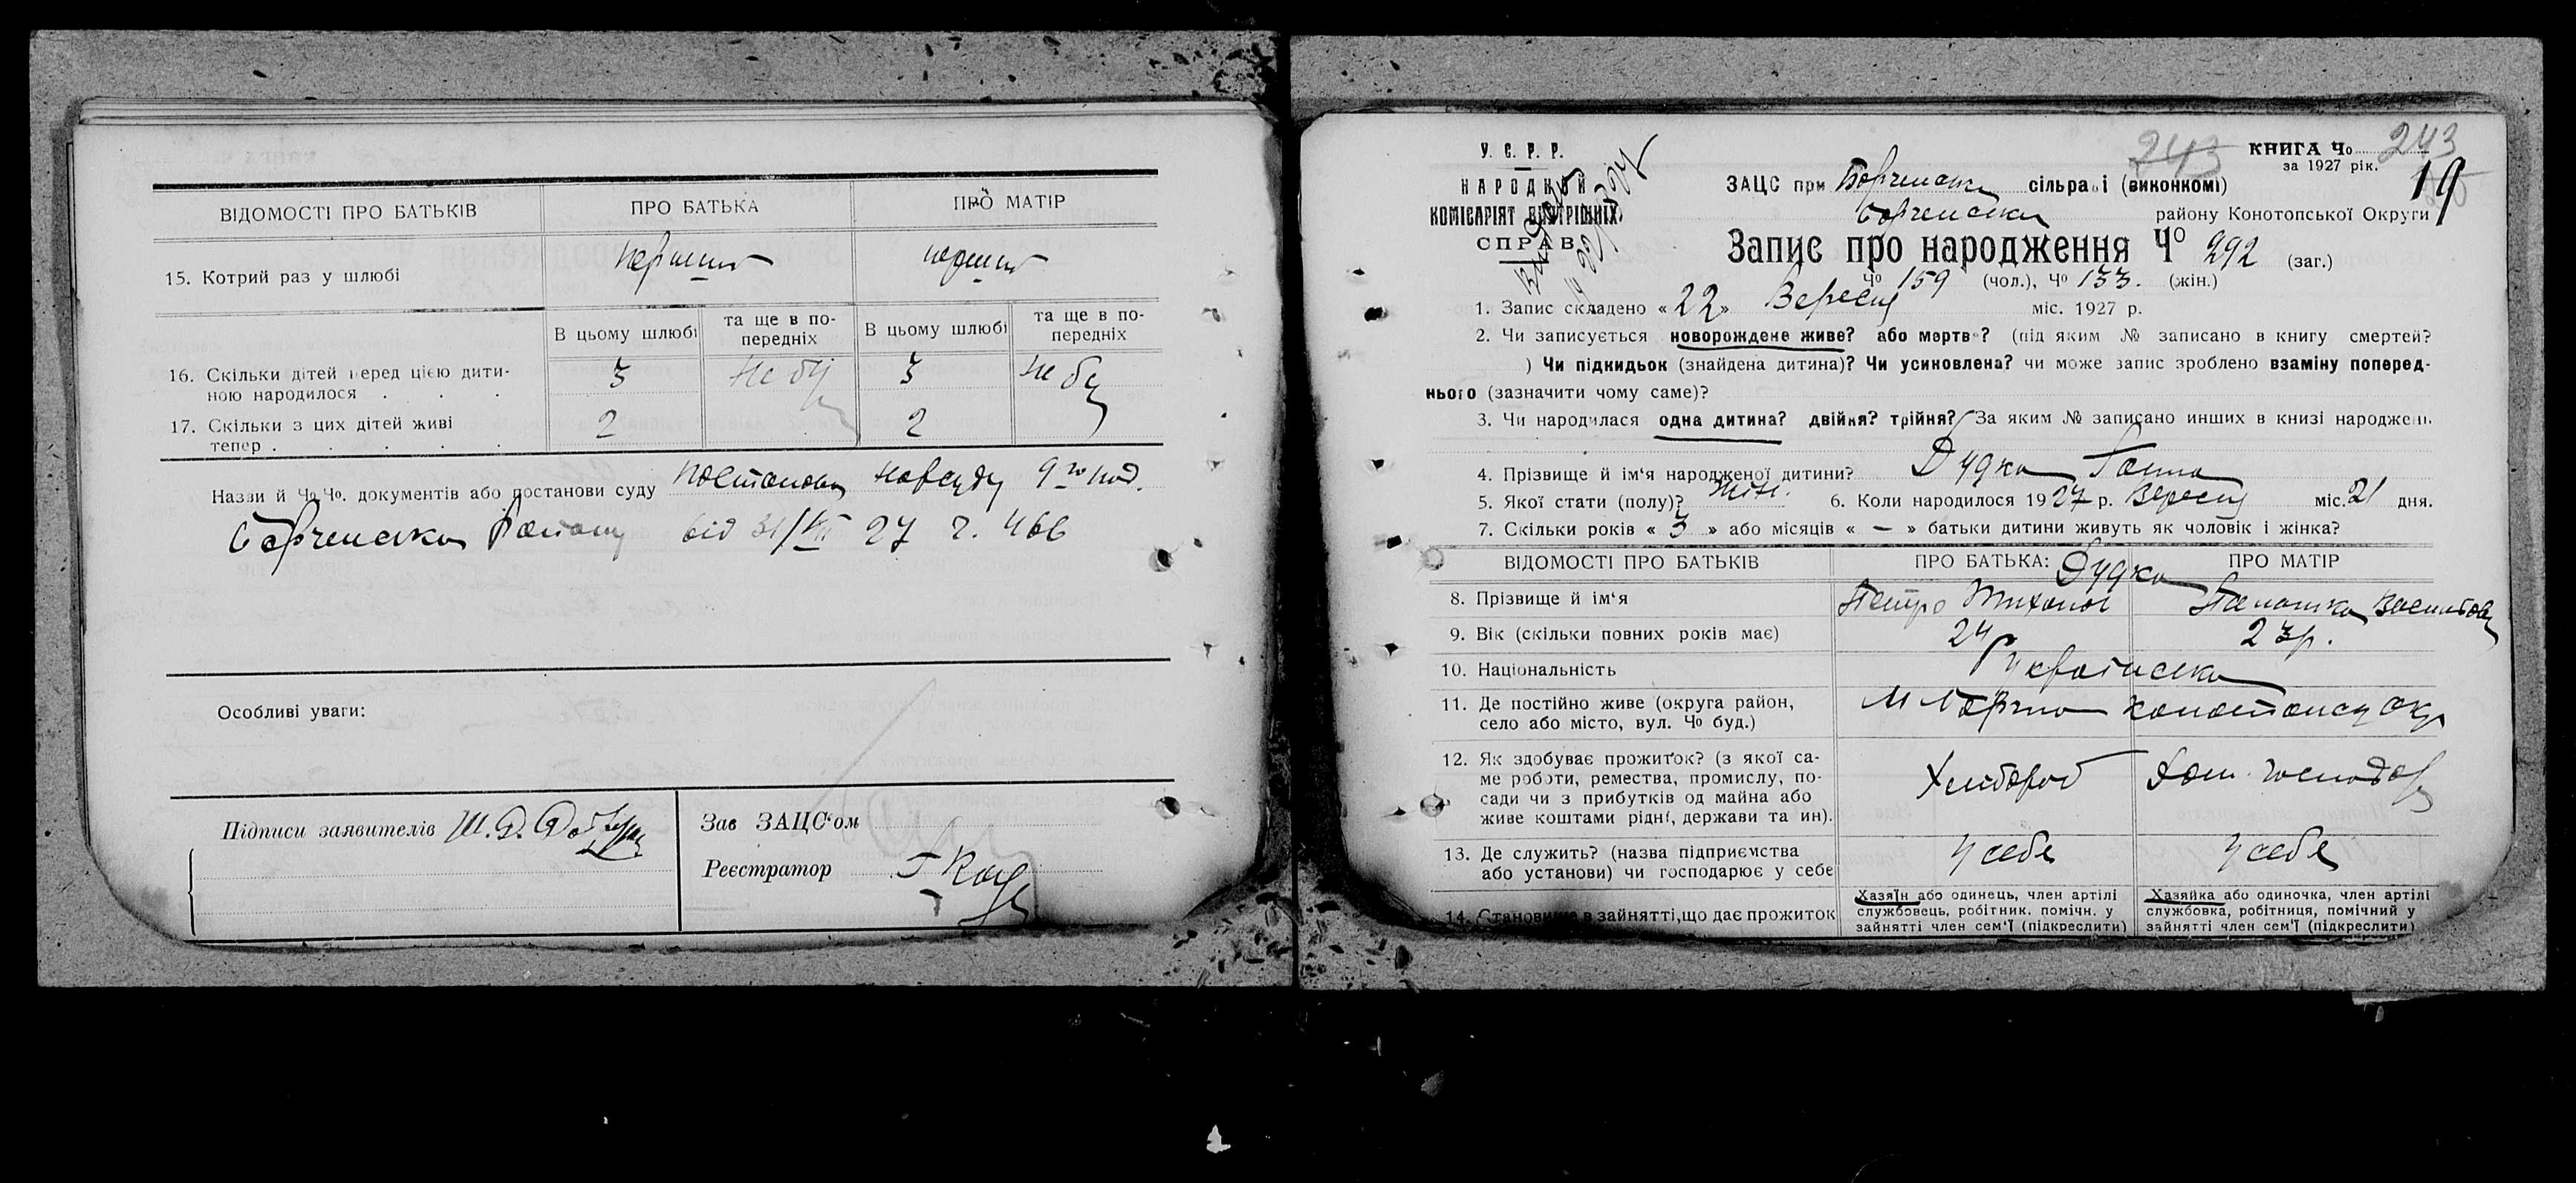 ВІДОМОСТІ ПРО БАТЬКІВ ПРО БАТЬКА ПРО МАТІР
15. Котрий раз у шлюбі
В цьому шлюбі та ще в по-передніх В цьому шлюбі та ще в по-передніх
16. Скільки дітей перед цією дити-
ною народилося . . . 3 не бу 3 не бу
17. Скільки з цих дітей живі 2 2
тепер . . . . .
Назви й Чо Чо. документів або постанови суду
району від 31/VII 27 г. 466
Особливі уваги:
Підписи заявителів
Зав ЗАЦС'ом
Реєстратор
У. С. Р. Р.
НАРОДНИЙ
КОМІСАРІЯТ ВНУТРІШНІХ
СПРАВ
243 КНИГА Чо 243
за 1927 рік.
19
ЗАЦС при Борзенська сільраді (виконкомі)
Борзенська району Конотопської Округи
Запис про народження Чо 292 (заг.)
Чо 159 (чол.), Чо 133. (жін.)
1. Запис складено «22» Вересня міс. 1927 р.
2. Чи записується новорождене живе? або мертве? (під яким № записано в книгу смертей?
) Чи підкидьок (знайдена дитина)? Чи усиновлена? чи може запис зроблено взаміну поперед-
нього (зазначити чому саме)?
3. Чи народилася одна дитина? двійня? трійня? За яким № записано инших в книзі народжень
4. Прізвище й ім'я народженої дитини? Дудка Ганна
5. Якої стати (полу)? жін. 6. Коли народилося 1927 р. Вересня міс. 21 дня.
7. Скільки років « 3 » або місяців « — » батьки дитини живуть як чоловік і жінка?
ВІДОМОСТІ ПРО БАТЬКІВ ПРО БАТЬКА: ПРО МАТІР
Дудка
8. Прізвище й ім'я Петро
9. Вік (скільки повних років має) 24р 23р.
10. Національність Українська
11. Де постійно живе (округа район,
село або місто, вул. Чо буд.) М Борзна Конотопська окр
12. Як здобуває прожиток? (з якої са-
ме роботи, ремества, промислу, по-
сади чи з прибутків од майна або
живе коштами рідні, держави та ин). Хлібороб Дом. господар
13. Де служить? (назва підприємства
або установи) чи господарює у себе у себе у себе
14. Становище в зайнятті, що дає прожиток
Хазяїн або одинець, член артілі
службовець, робітник. помічн. у
зайнятті член сем'ї (підкреслити)
Хазяйка або одиночка, член артілі
службовка, робітниця, помічний у
зайнятті член сем'ї (підкреслити)